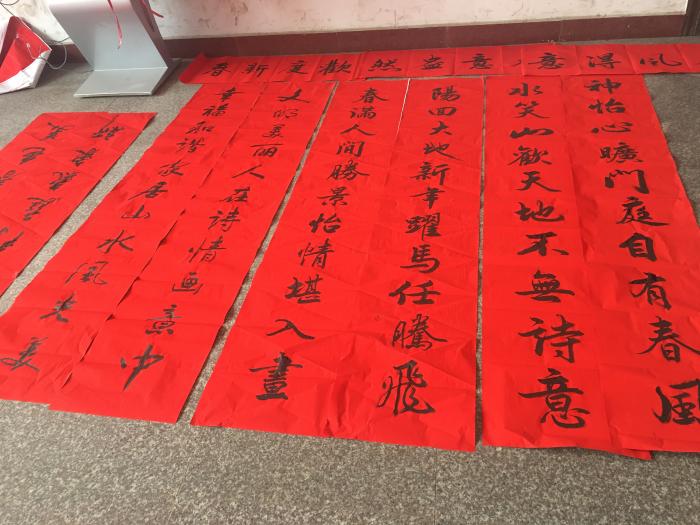 風得意
意盎然
歡度新春
神怡心曠門庭自有春風
水笑山歡天地不無詩意
陽回大地新年躍馬任騰飛
春滿人間勝景怡情堪入畫
文明美丽人在詩情画意中
幸福和諧家居山水風光美